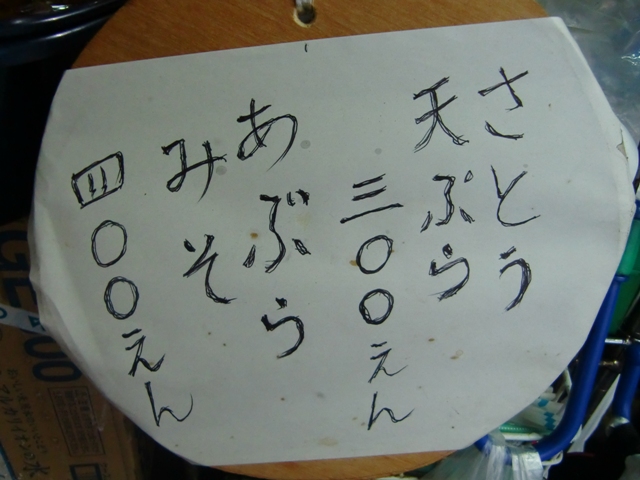 さとう
天ぷら
三〇〇えん
あぶら
みそ
四〇〇えん